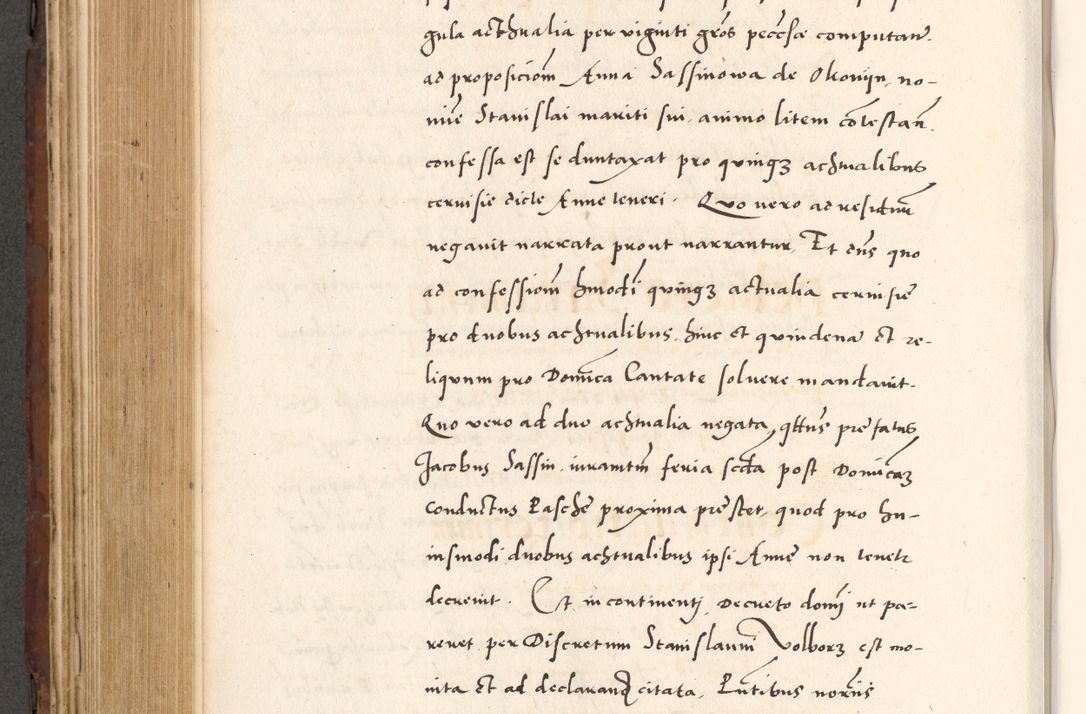 gula acthualia per viginti gros peccse computan.
ad proposiciom Anna Sassinowa de Okonijn, no-
mie Stanislai mariti sui, animo litem cotestan.
confessa est se duntaxat pro quinqz achtualibus
ceruisie dicte Anne teneri. Quo vero ad residuu
negauit narrata prout narrantur, Et dns quo
ad confessiom hmodi quinqz actualia ceruisie
pro duobus achtualibus, hinc et quindena et re-
liqunm pro Domica Cantate soluere mandauit.
Quo vero ad duo achtualia negata, qttus prefatus
Jacobus Sassin, iuramtm feria scda post Domicaz
Conductus Pasche proxima prestet, quod pro hu-
iusmodi duobus achtualibus ipsi Anne non tenetr
decreuit. Et in continenti Decreto domi ut pa-
reret per Discretum Stanislaum Volborz est mo-
nita et ad declarand citata, Pntibus norijs